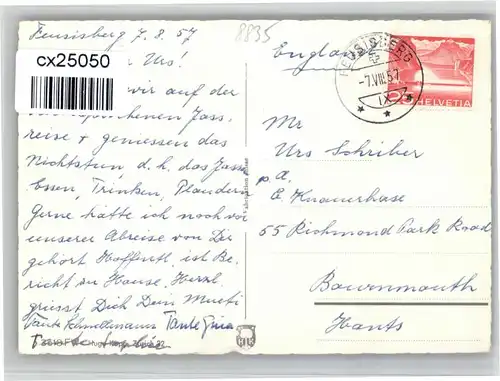 Feusisberg 7.8.57
8835
cx25050
Urs!
wir auf der
Jass,
reise + geniessen das
Nichtstun, d.h. das Jassen
Essen, Trinken, Plaudern
Gerne hätte ich noch vor
unserer Abreise von Dir
gehört. Hoffentl. ist Be-
richt zu Hause. Herzl.
grüsst Dich Dein Mueti
Tante
England
FEUSISBERG
-7.VIII.57
IX
HELVETIA
Mr
Urs Schriber
p.a.
E. Knauerhase
55 Richmond Park Road
Bowenmouth
Hants